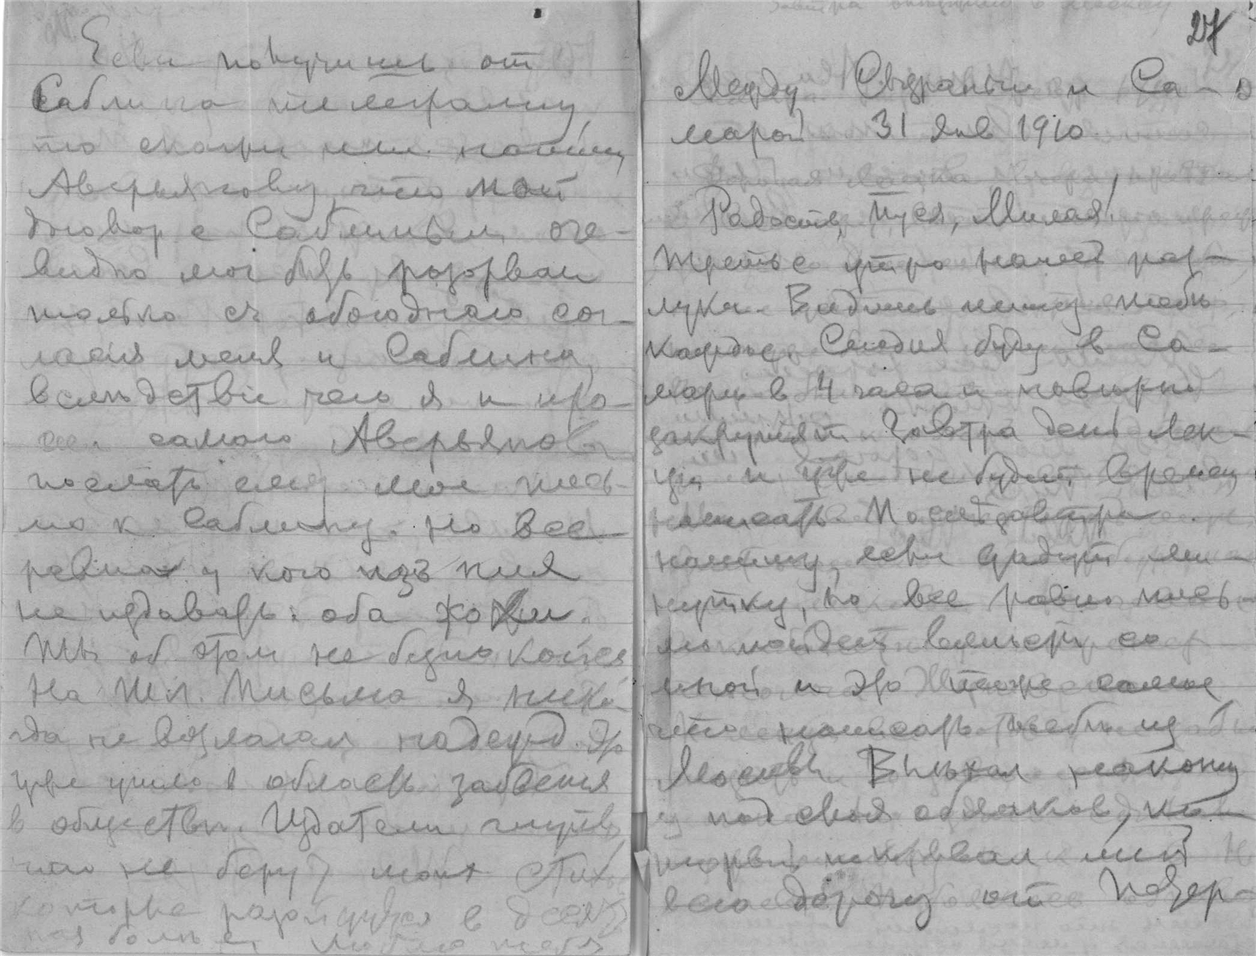 Если получишь от
Саблина телеграмму,
то скажи или напиши
Аверьянову, что мой
договор с Саблиным оче-
видно мог быть разорван
только съ обоюднаго сог-
ласія меня и Саблина,
вследствіе чего я и про-
сил самого Аверьянова
послать ему мое пись-
мо к Саблину. Но все
равно у кого изъ них
не издавать: оба
Ты об этом не безпокойся
На Письма я нико-
гда не возлагал надежд. Это
уже ушло в область забвенія
в обществе. Издатели
не берут моих стихов,
которые разойдутся в
больше, люблю тебя
27
Между Сызранью и Са-
марой 31 янв 1910
Радость, Пуся, Милая!
Третье утро нашей раз-
луки. Видишь пишу тебе
каждое. Сегодня буду в Са-
маре в 4 часа и наверно
закружат. Завтра день лек-
ціи и уже не будет времени
писать. Послезавтра
напишу, если урадут ми-
нутку, но все равно пись-
мо пойдет вместе со
мной и это тоже самое
что написать тебе из
Москвы. Выехал наконец
из под свода облаков, ко-
торый покрывал мой
всю дорогу от